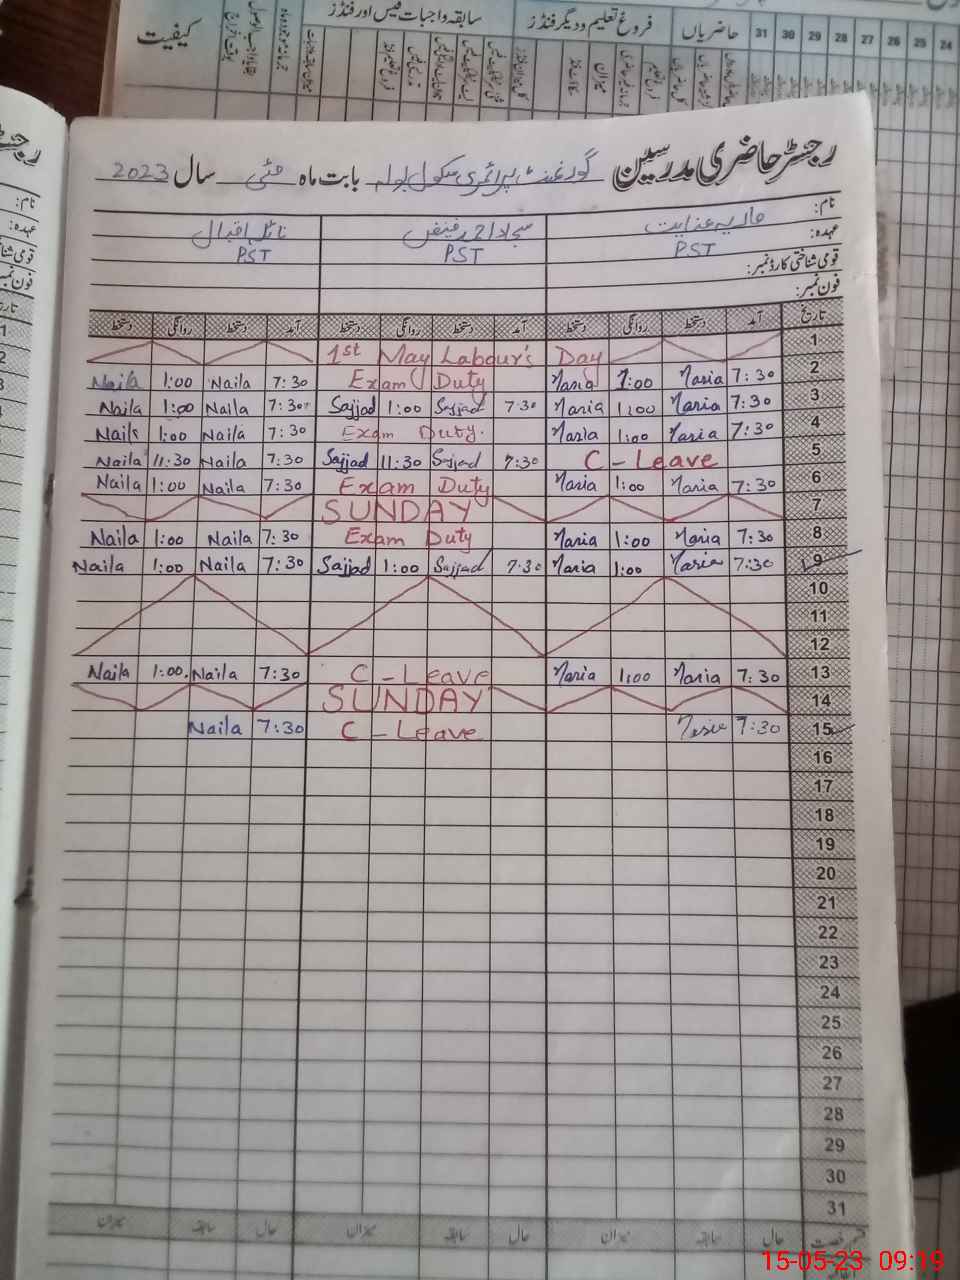 کیفیت
سابقہ واجبات فیس اور فنڈز
فروغ تعلیم و دیگر فنڈز
حاضریاں
31 30 29 28 27 26 25 24
رجسٹر حاضری مدرسین گورنمنٹ پرائمری سکول بابت ماہ مئی سال 2023
نام: ماریہ عنایت سجاد نائلہ اقبال
عہدہ: PST PST PST
قومی شناختی کارڈ نمبر:
فون نمبر:
تاریخ آمد دستخط روانگی دستخط آمد دستخط روانگی دستخط آمد دستخط روانگی دستخط
1st May Labour's Day 1
Naila 1:00 Naila 7:30 Exam Duty Maria 1:00 Maria 7:30 2
Naila 1:00 Naila 7:30 Sajjad 1:00 Sajjad 7:30 Maria 1:00 Maria 7:30 3
Naila 1:00 Naila 7:30 Exam Duty. Maria 1:00 Maria 7:30 4
Naila 11:30 Naila 7:30 Sajjad 11:30 Sajjad 7:30 C - Leave 5
Naila 1:00 Naila 7:30 Exam Duty Maria 1:00 Maria 7:30 6
SUNDAY 7
Naila 1:00 Naila 7:30 Exam Duty Maria 1:00 Maria 7:30 8
Naila 1:00 Naila 7:30 Sajjad 1:00 Sajjad 7:30 Maria 1:00 Maria 7:30 9
10
11
12
Naila 1:00. Naila 7:30 C - Leave Maria 1:00 Maria 7:30 13
SUNDAY 14
Naila 7:30 C - Leave Maria 7:30 15
16
17
18
19
20
21
22
23
24
25
26
27
28
29
30
31
حال سابقہ میزان حال سابقہ میزان حال سابقہ میزان
15-05-23 09:19